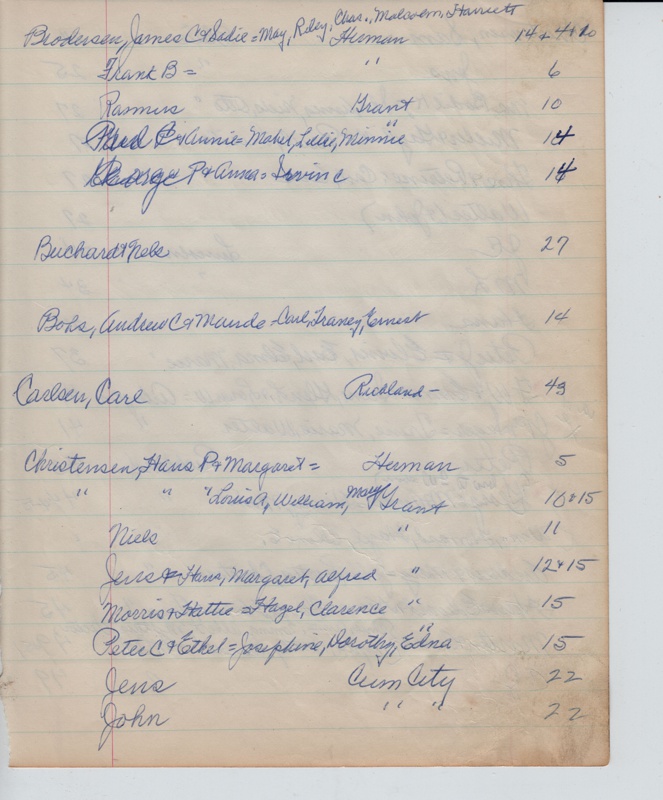 Brodersen, James C & Sadie = May, Riley, Char., Malcolm, Harriett
Herman 14 & 4 & 10
Frank B = " 6
Rasmus Grant 10
Paul C & Annie = Mabel, Lillie, Minnie " 14
George P & Anna = Irvine 14
"
Buchardt Nels 27
Bohs, Andrew C & Maude - Carl, Traney, Ernest 14
Carlsen, Carl Richland - 43
Christensen, Hans P & Margaret = Herman 5
" " " Louis A, William, Mary Grant 10 & 15
Niels " 11
Jens & Hans, Margaret, Alfred - " 12 & 15
Morris & Hattie = Hazel, Clarence " 15
Peter C & Ethel = Josephine, Dorothy, Edna " 15
Jens Cum City 22
John " " 22